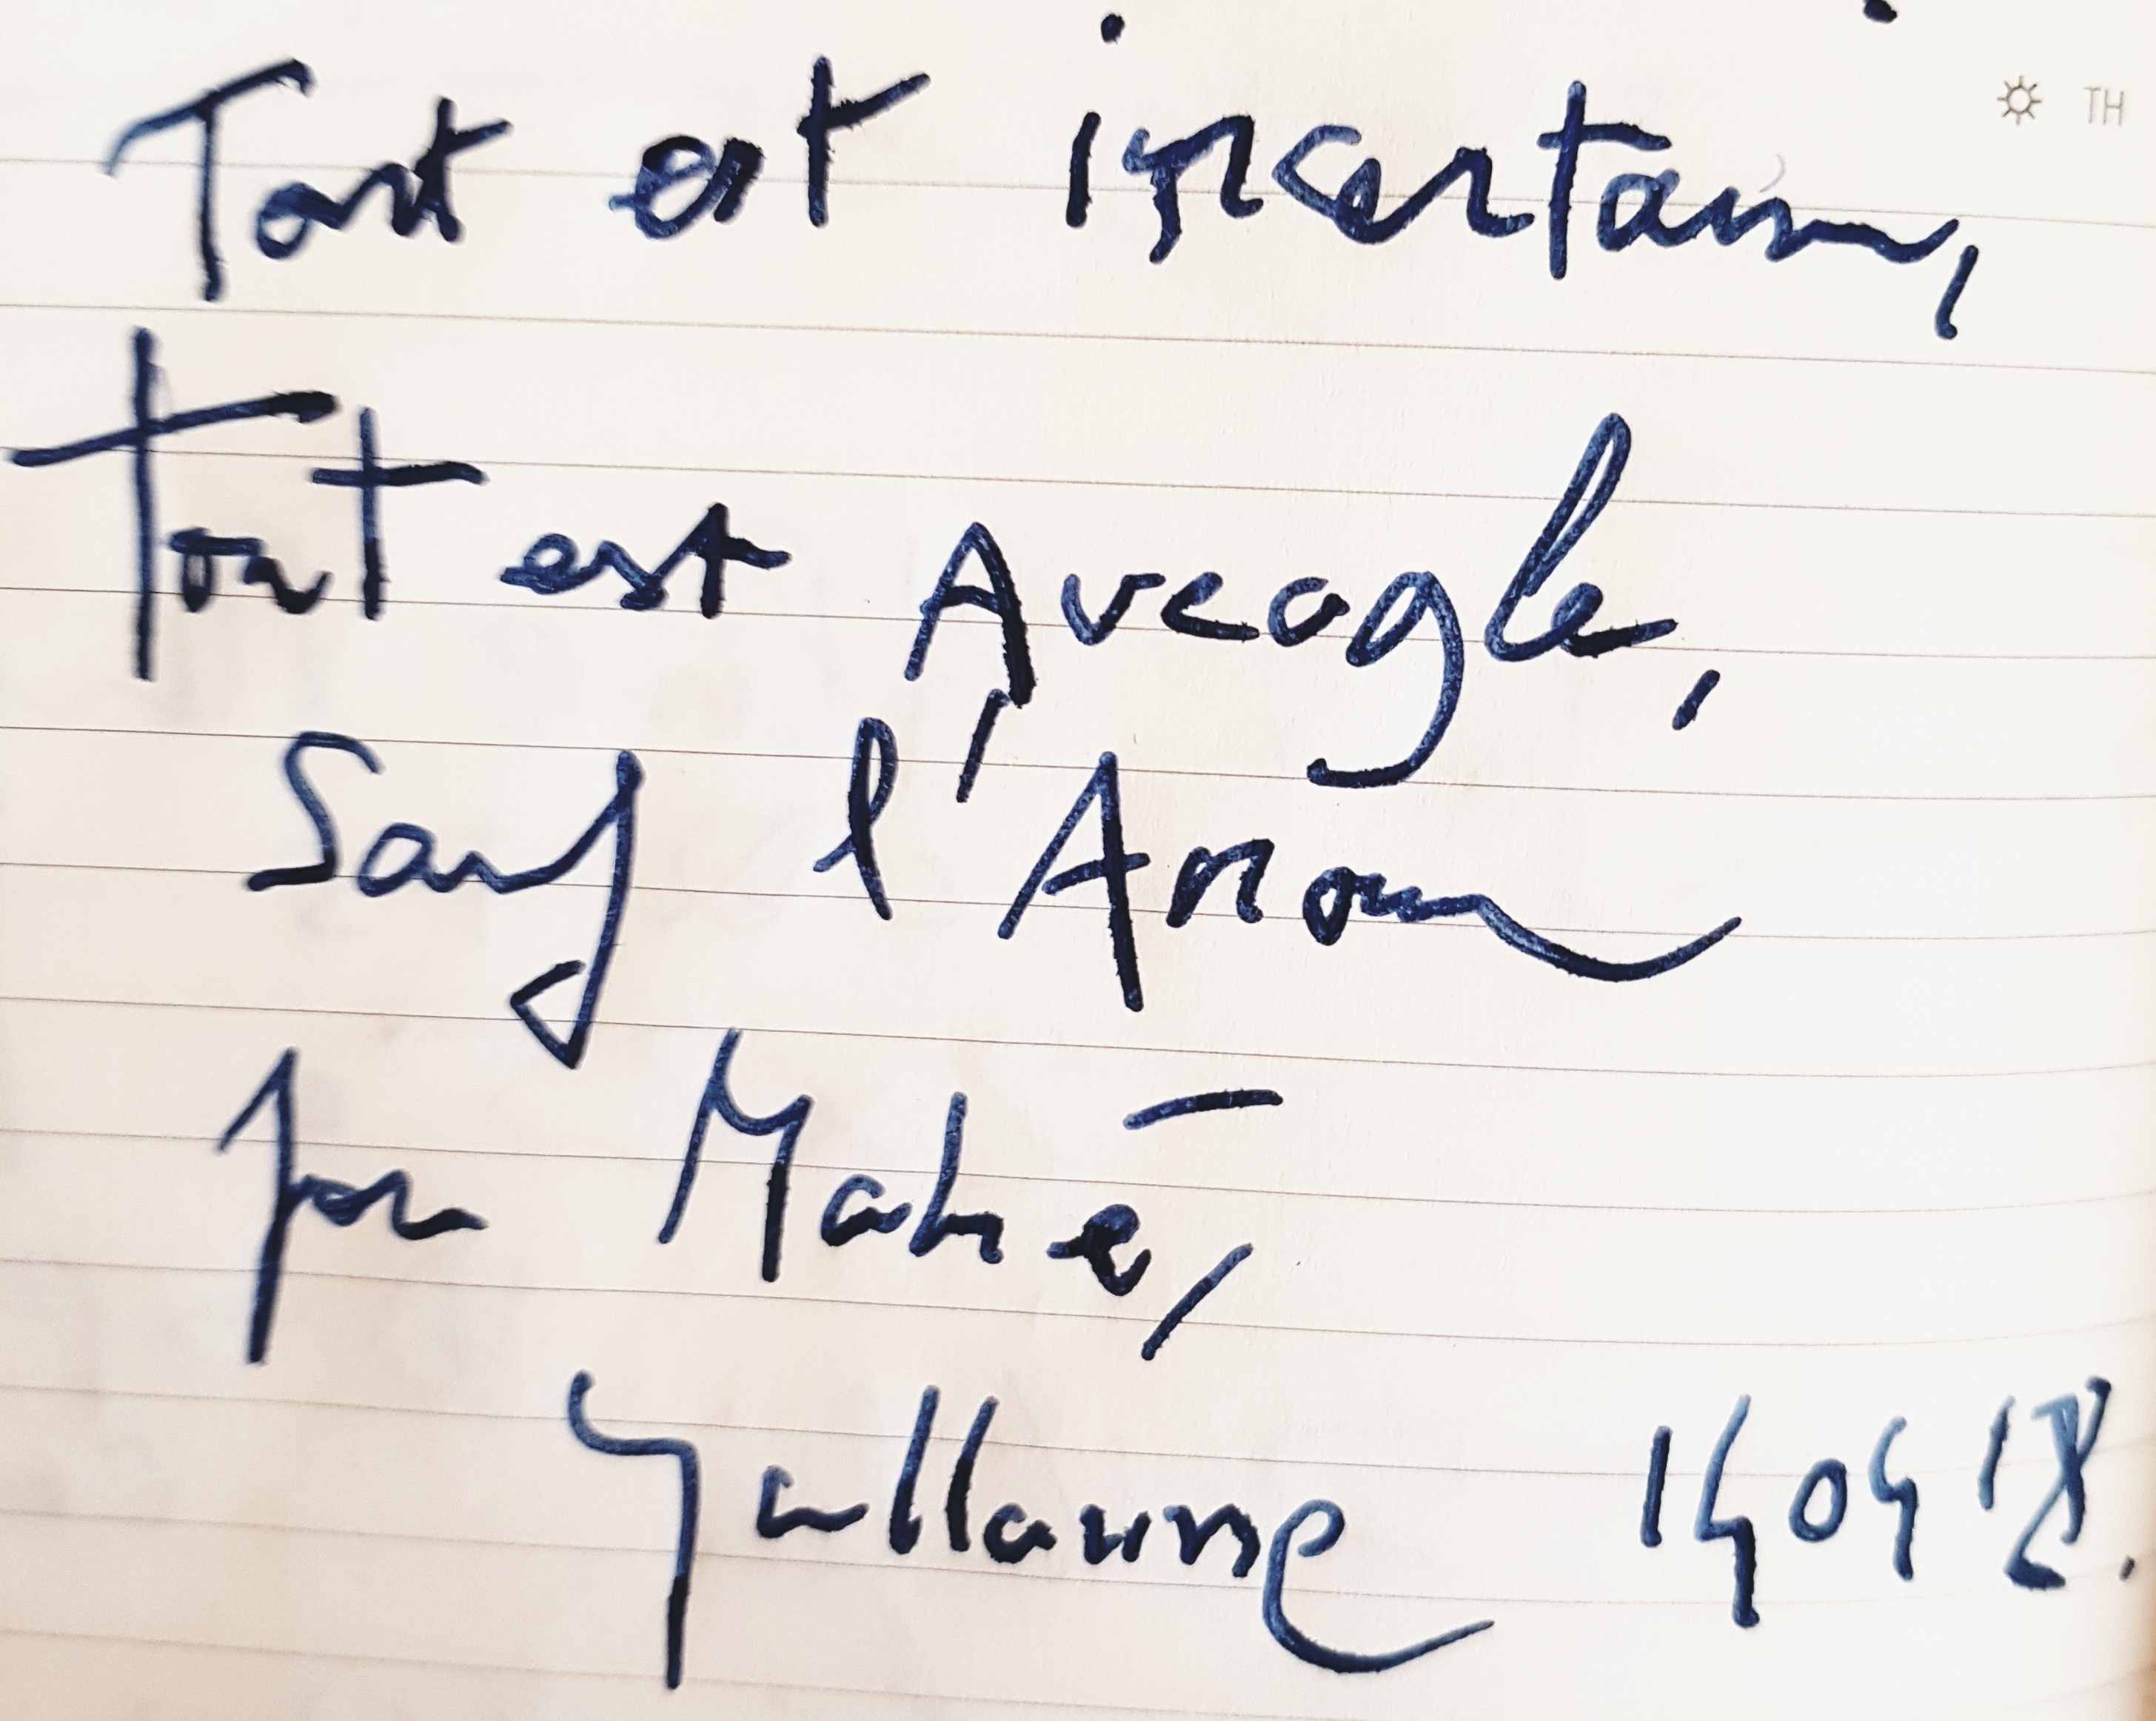 TH
Tout est incertain,
Tout est Aveugle,
Sauf l'Amour
pour Mahé,
Guillaume 14 04 18.